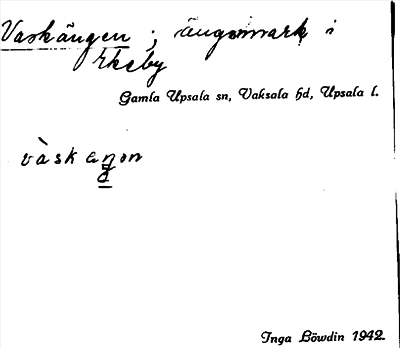 Vaskängen ; ängsmark i
Ekeby
Gamla Upsala sn, Vaksala hd, Upsala l.
vàskæŋon
Inga Löwdin 1942.